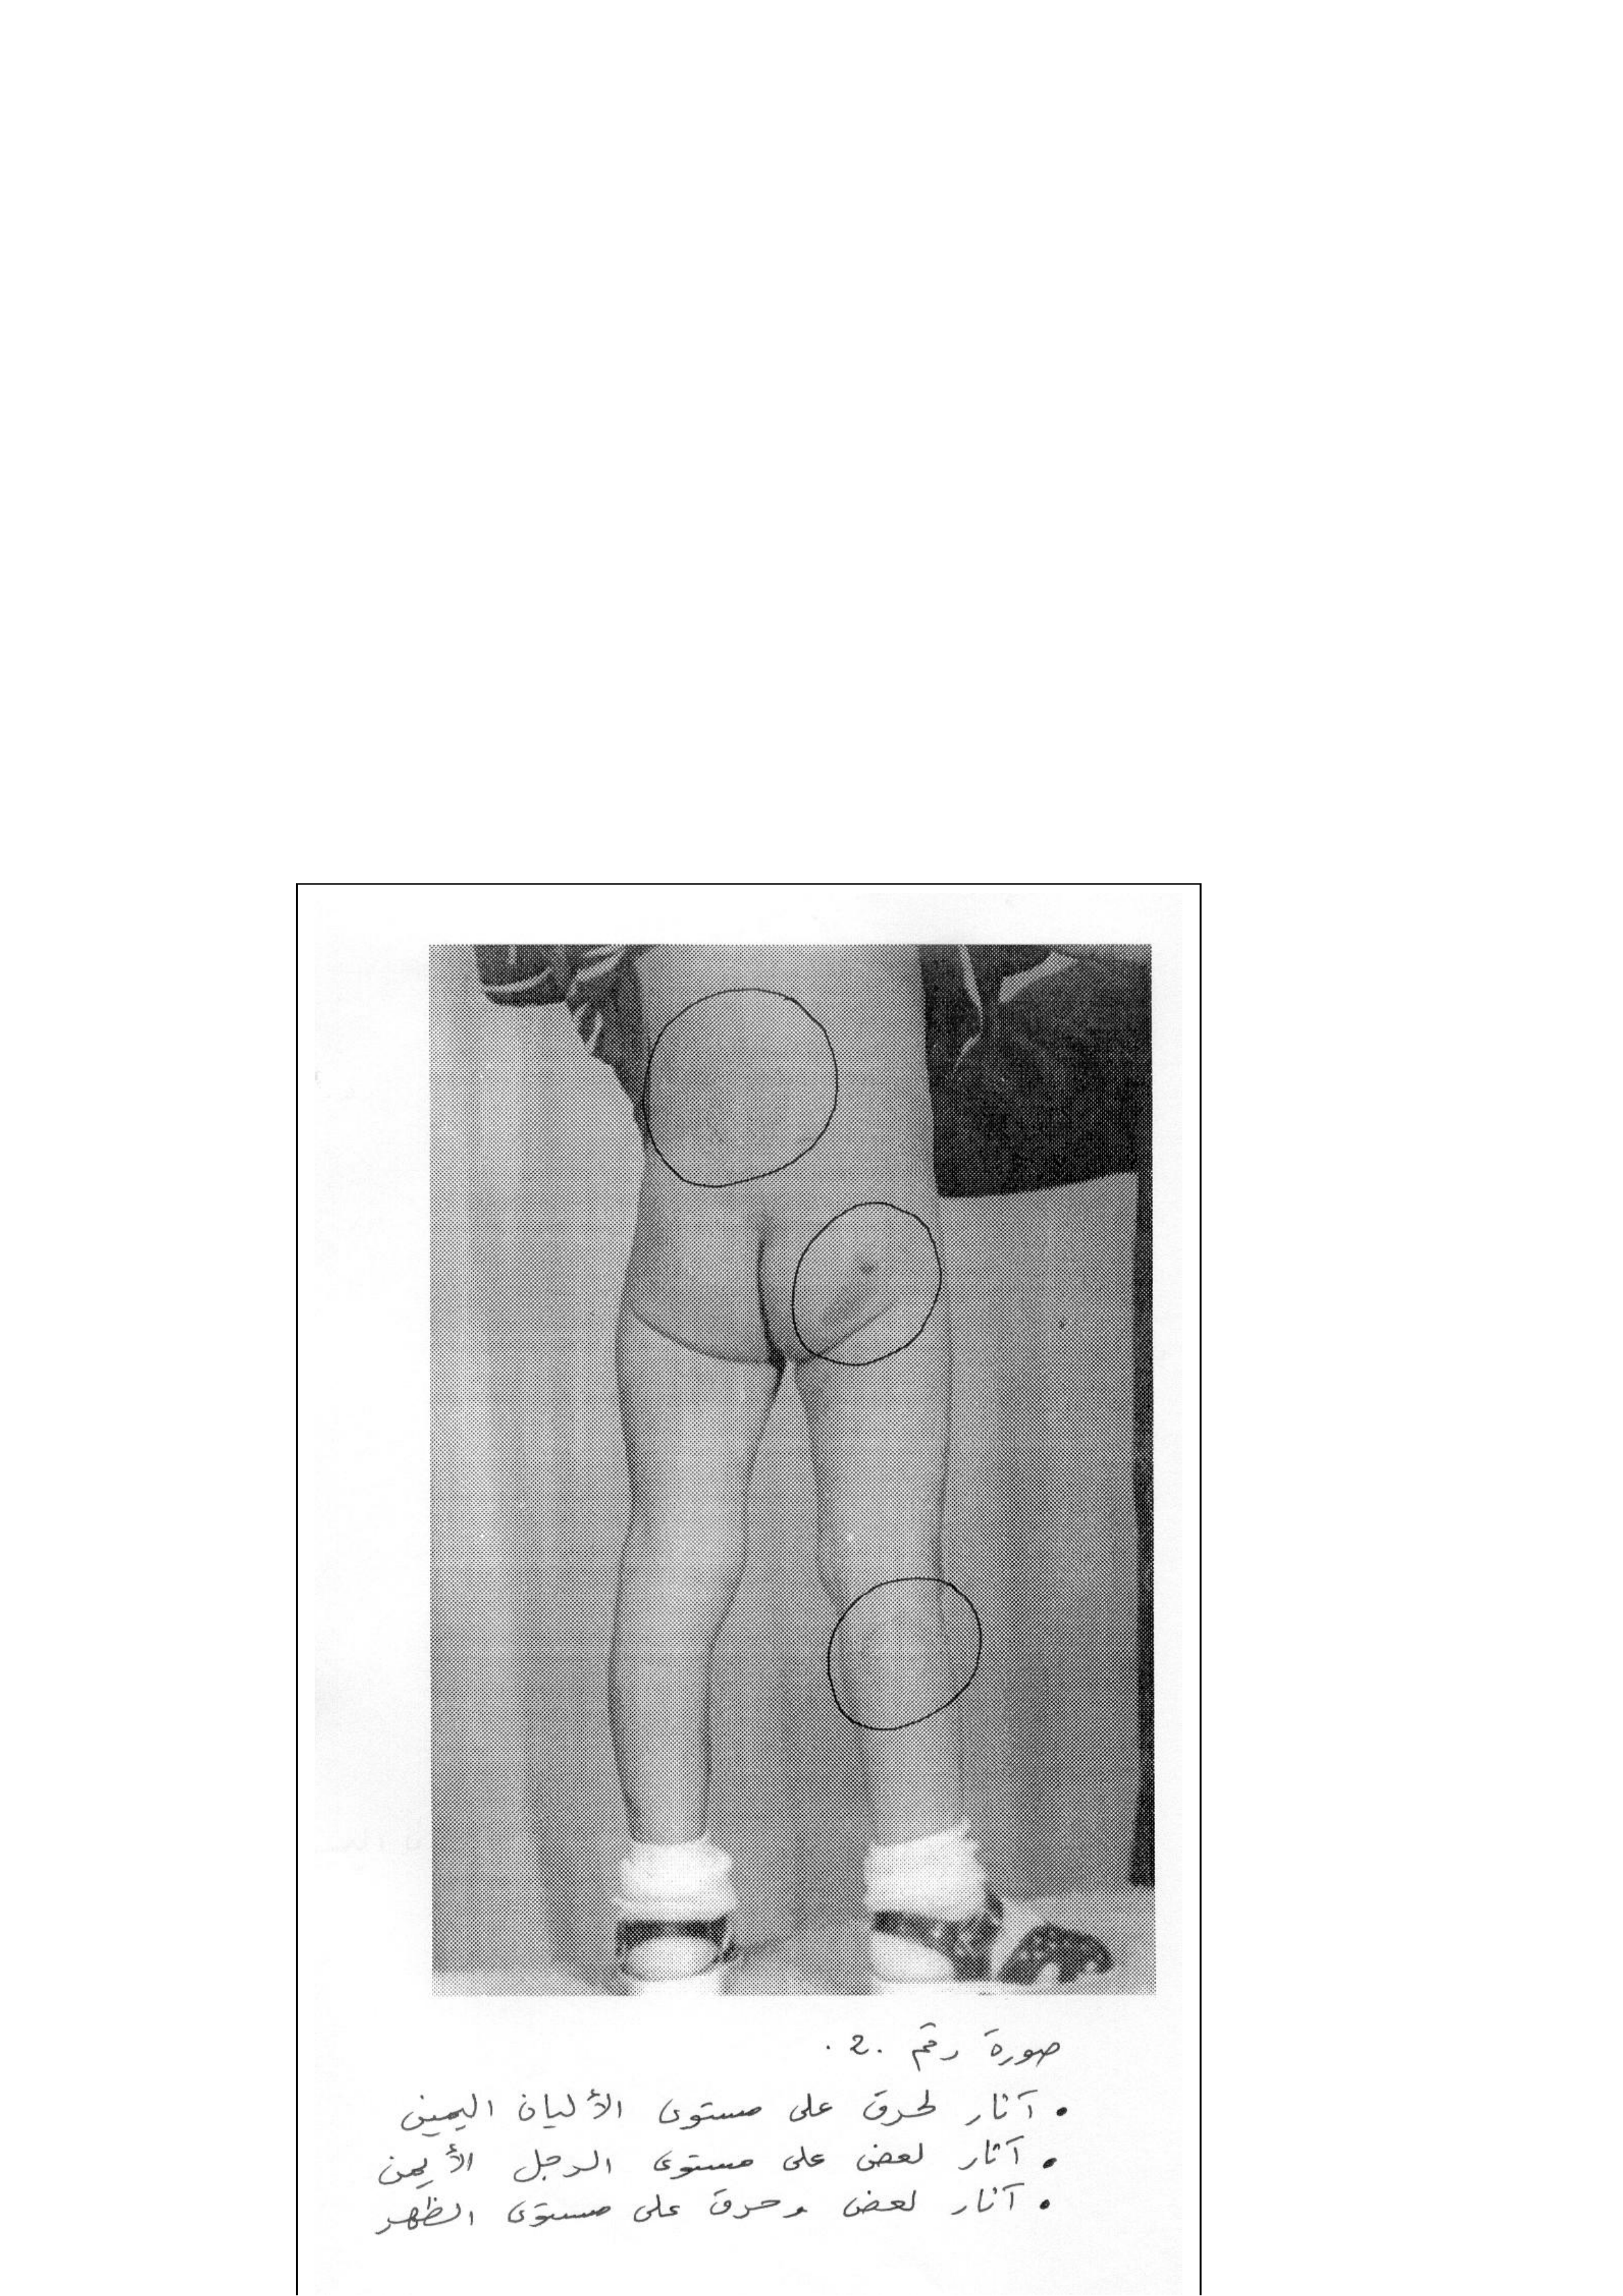 صورة رقم .2.
• آثار لحرق على مستوى الأليان اليمين
• آثار لعض على مستوى الرجل الأيمن
• آثار لعض وحرق على مستوى الظهر